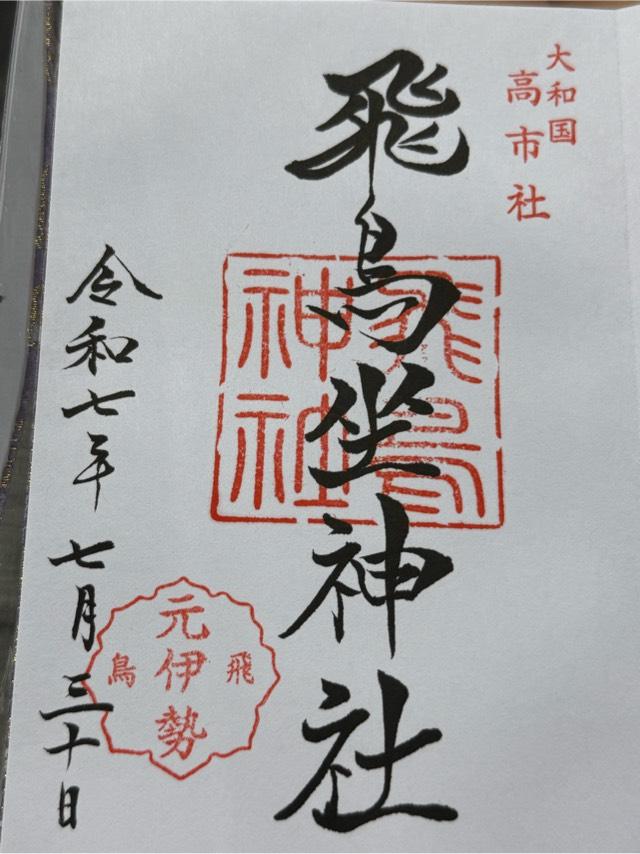 大和国
高市社
飛鳥坐神社
飛鳥
神社
令和七年七月三十日
元伊勢
飛鳥